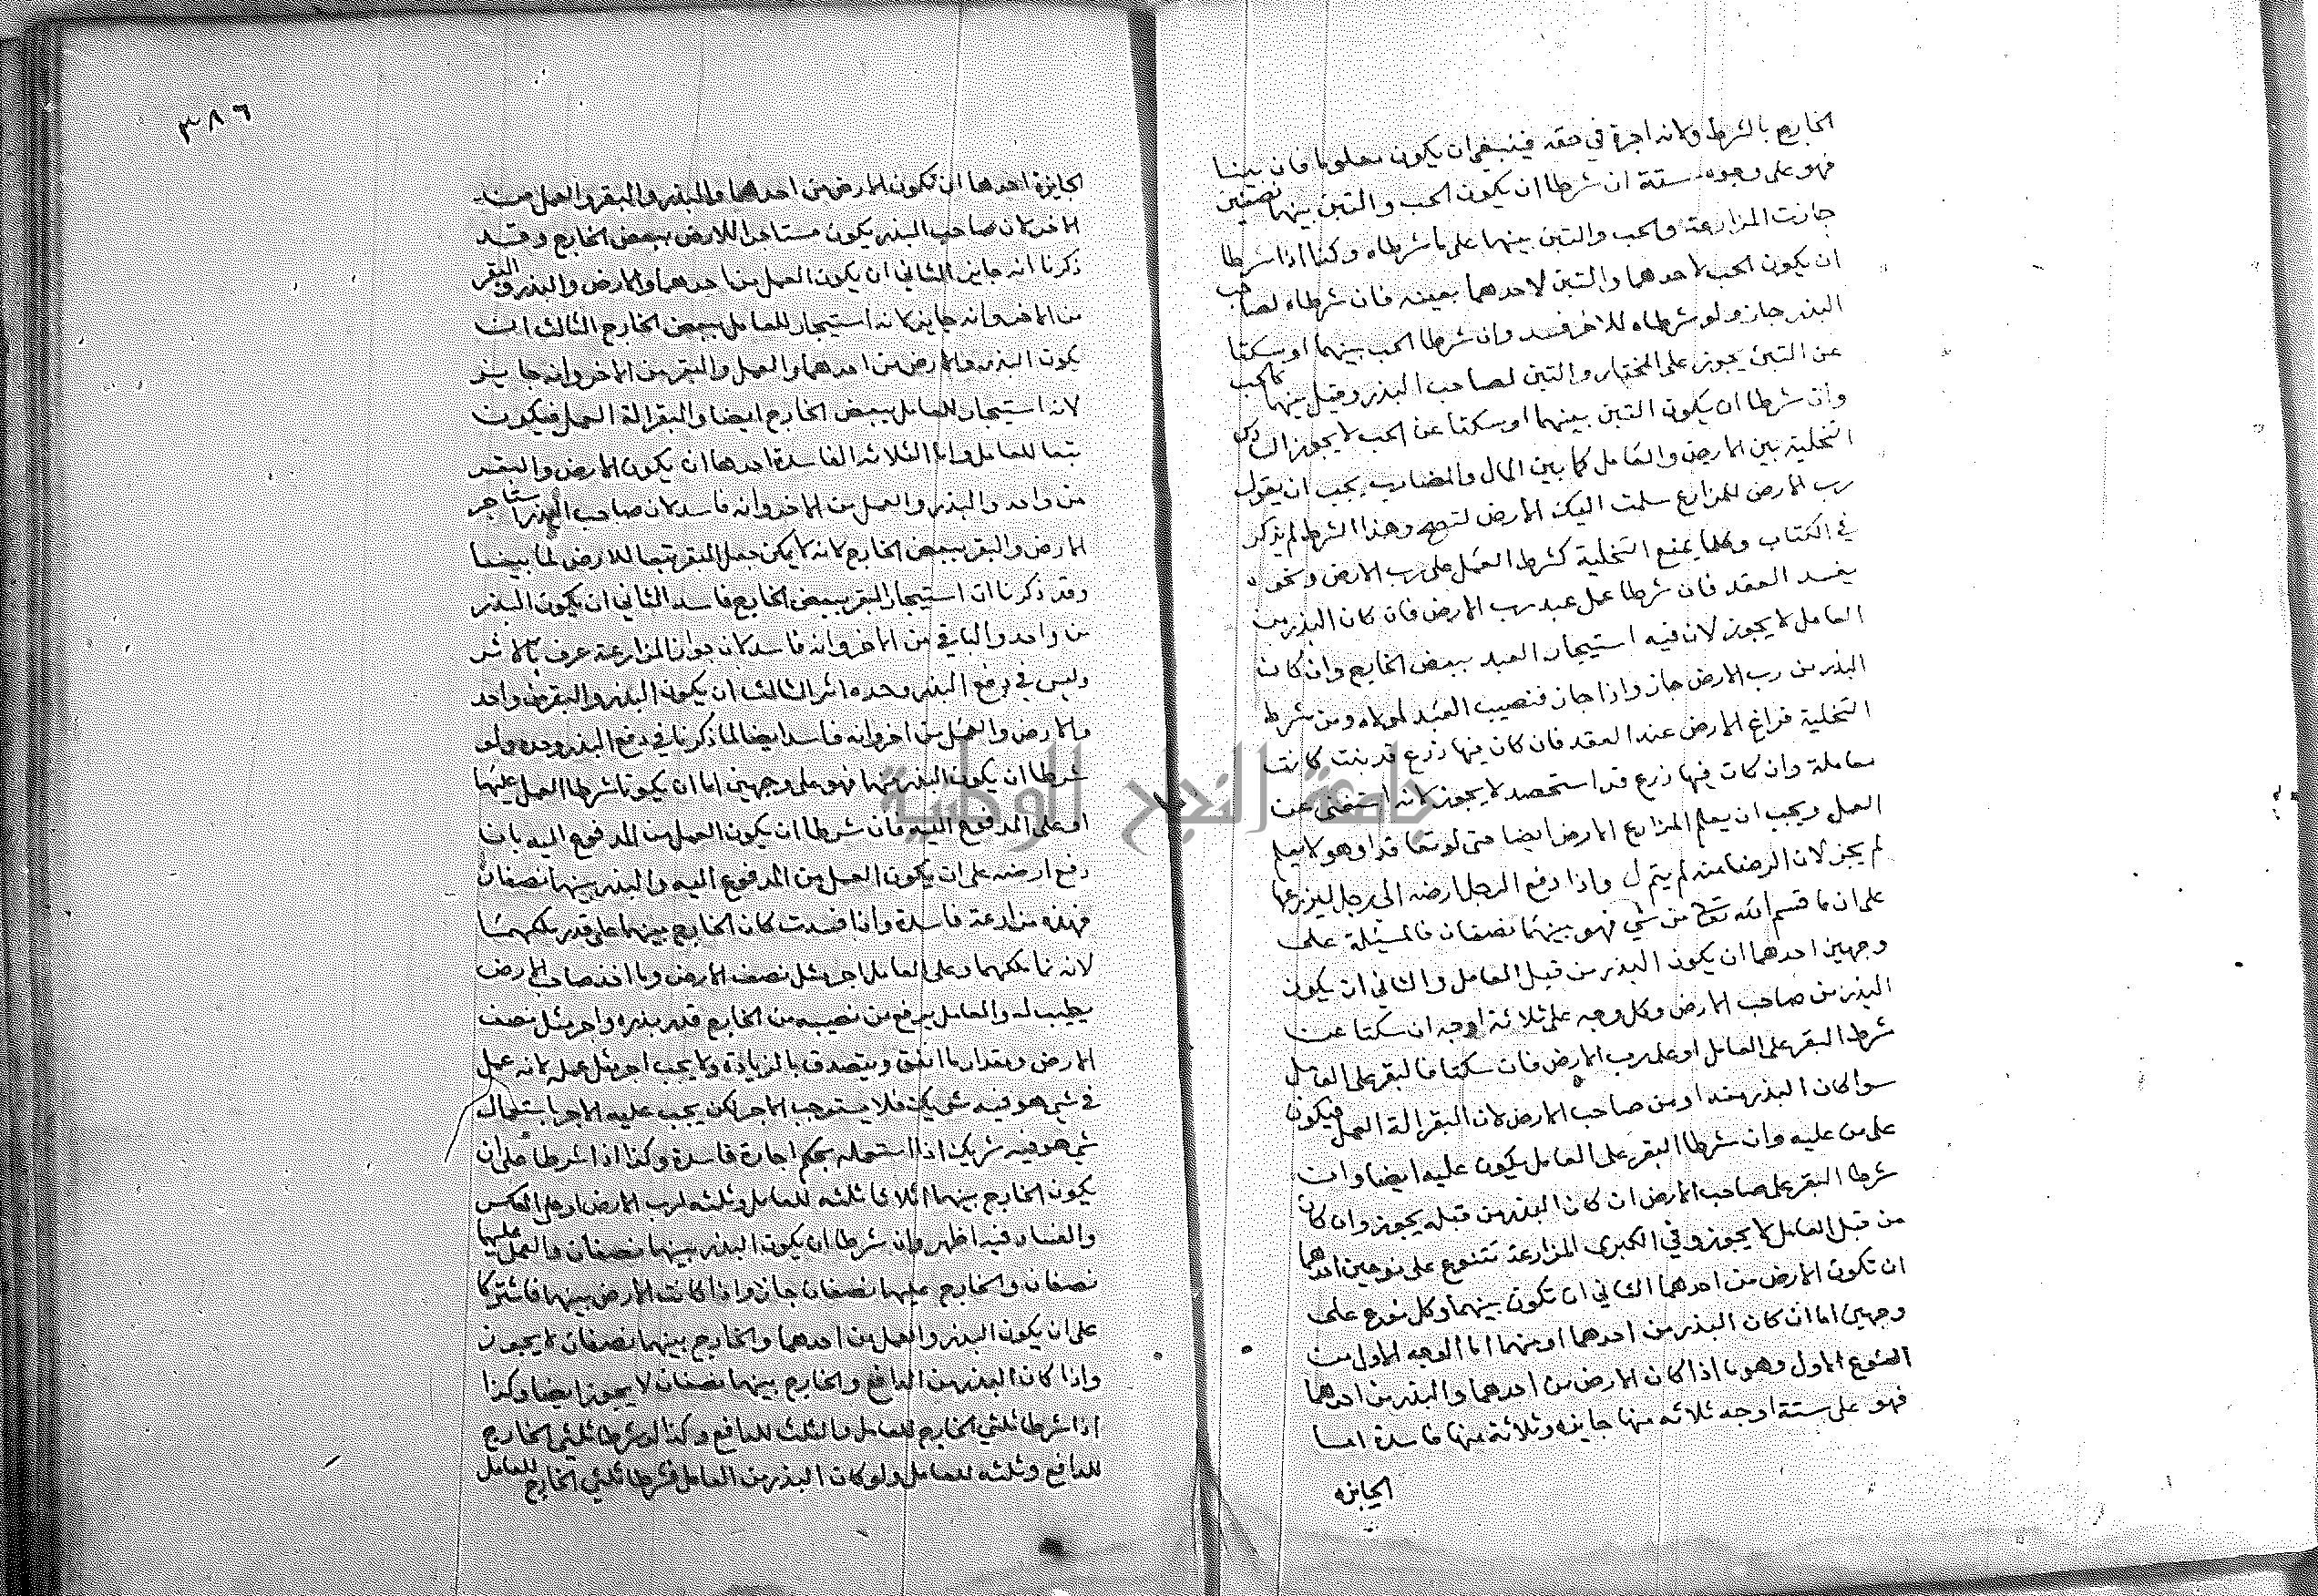 الخارج بالشرط ولانه اجرة في حقه فينبغي ان يكون معلوما فان بينا
فهو على وجوه ستة ان شرطا ان يكون الحب والتبن بينهما نصفين
جازت المزارعة والحب والتبن بينهما على ما شرطاه وكذا اذا شرطا
ان يكون الحب لاحدهما والتبن لاحدهما بعينه فان شرطاه لصاحب
البذر جاز ولو شرطاه للاخر فسد وان شرطا الحب بينهما او سكتا
عن التبن يجوز على المختار والتبن لصاحب البذر وقيل بينهما كالحب
وان شرطا ان يكون التبن بينهما او سكتا عن الحب لا يجوز
التخلية بين الارض والعامل كما بين المال والمضارب يجب ان يقول
رب الارض للمزارع سلمت اليك الارض لتصح وهذا الشرط لم يذكر
في الكتاب وكلما يمنع التخلية كشرط العمل على رب الارض ونحوه
يفسد العقد فان شرطا عمل عبد رب الارض فان كان البذر من
العامل لا يجوز لان فيه استيجار العبد ببعض الخارج وان كان
البذر من رب الارض جاز واذا جاز فنصيب العبد لمولاه ومن شرط
التخلية فراغ الارض عند العقد فان كان فيها زرع قد نبت كانت
معاملة وان كان فيها زرع قد استحصد لا يجوز لانه استغنى عن
العمل ويجب ان يعلم المزارع الارض ايضا حتى لو تعاقدا وهو لا يعلم
لم يجز لان الرضا منه لم يتم واذا دفع الرجل ارضه الى رجل ليزرعها
على ان ما قسم الله تع من شي فهو بينهما نصفان فالمسئلة على
وجهين احدهما ان يكون البذر من قبل العامل والثاني ان يكون
البذر من صاحب الارض وكل وجه على ثلاثة اوجه ان سكتا عن
شرط البقر على العامل او على رب الارض فان سكتا فالبقر على العامل
سوا كان البذر منه او من صاحب الارض لان البقر الة العمل فيكون
على من عليه وان شرطا البقر على العامل يكون عليه ايضا وان
شرطا البقر على صاحب الارض ان كان البذر من قبله يجوز وان كان
من قبل العامل لا يجوز وفي الكبرى المزارعة تتنوع على نوعين احدهما
ان تكون الارض من احدهما الثاني ان تكون بينهما وكل نوع على
وجهين اما ان كان البذر من احدهما او منهما اما الوجه الاول من
النوع الاول وهو ما اذا كان الارض من احدهما والبذر من احدهما
فهو على ستة اوجه ثلاثه منها جايزه وثلاثة منها فاسدة اما
الجايزه
٣٨٦
الجايزة احدها ان تكون الارض من احدهما والبذر والبقر والعمل من
الاخر لان صاحب البذر يكون مستاجرا للارض ببعض الخارج وقد
ذكرنا انه جايز الثاني ان يكون العمل من احدهما والارض والبذر والبقر
من الاخر وانه جايز لانه استيجار للعامل ببعض الخارج الثالث ان
يكون البذر والارض من احدهما والعمل والبقر من الاخر وانه جايز
لانه استيجار للعامل ببعض الخارج ايضا والبقر الة العمل فيكون
تبعا للعامل واما الثلاثه الفاسدة احدها ان يكون الارض والبقر
من واحد والبذر والعمل من الاخر وانه فاسد لان صاحب البذر استاجر
الارض والبقر ببعض الخارج لانه لا يمكن جعل البقر تبعا للارض لما بينا
وقد ذكرنا ان استيجار البقر ببعض الخارج فاسد الثاني ان يكون البذر
من واحد والباقي من الاخر وانه فاسد لان جواز المزارعة عرف بالاثر
وليس في دفع البذر وحده اثر الثالث ان يكون البذر والبقر من واحد
والارض والعمل من اخر وانه فاسد ايضا لما ذكرنا في دفع البذر وحده ولو
شرطا ان يكون البذر منهما فهو على وجهين اما ان يكونا شرطا العمل عليهما
او على المدفوع اليه فان شرطا ان يكون العمل من المدفوع اليه بان
دفع ارضه على ان يكون العمل من المدفوع اليه والبذر بينهما نصفان
فهذه مزارعة فاسدة واذا فسدت كان الخارج بينهما على قدر ملكهما
لانه نما ملكهما وعلى العامل اجر مثل نصف الارض وما اخذ صاحب الارض
يطيب له والعامل يرفع من نصيبه من الخارج قدر بذره واجر مثل نصف
الارض ومقدار ما انفق ويتصدق بالزيادة ولا يجب اجر مثل عمله لانه عمل
في شي هو فيه شريك فلا يستوجب الاجر لكن يجب عليه الاجر باستعمال
شي هو فيه شريك اذا استعمله بحكم اجارة فاسدة وكذا اذا شرطا على ان
يكون الخارج بينهما اثلاثا ثلثه للعامل وثلثه لرب الارض او على العكس
والفساد فيه اظهر وان شرطا ان يكون البذر بينهما نصفان والعمل عليهما
نصفان والخارج عليهما نصفان جاز واذا كانت الارض بينهما فاشتركا
على ان يكون البذر والعمل من احدهما والخارج بينهما نصفان لا يجوز
واذا كان البذر من الدافع والخارج بينهما نصفان لا يجوز ايضا وكذا
اذا شرطا ثلثي الخارج للعامل والثلث للدافع وكذا لو شرطا ثلثي الخارج
للدافع وثلثه للعامل ولو كان البذر من العامل فشرطا ثلثي الخارج للعامل
جامعة النجاح الوطنية